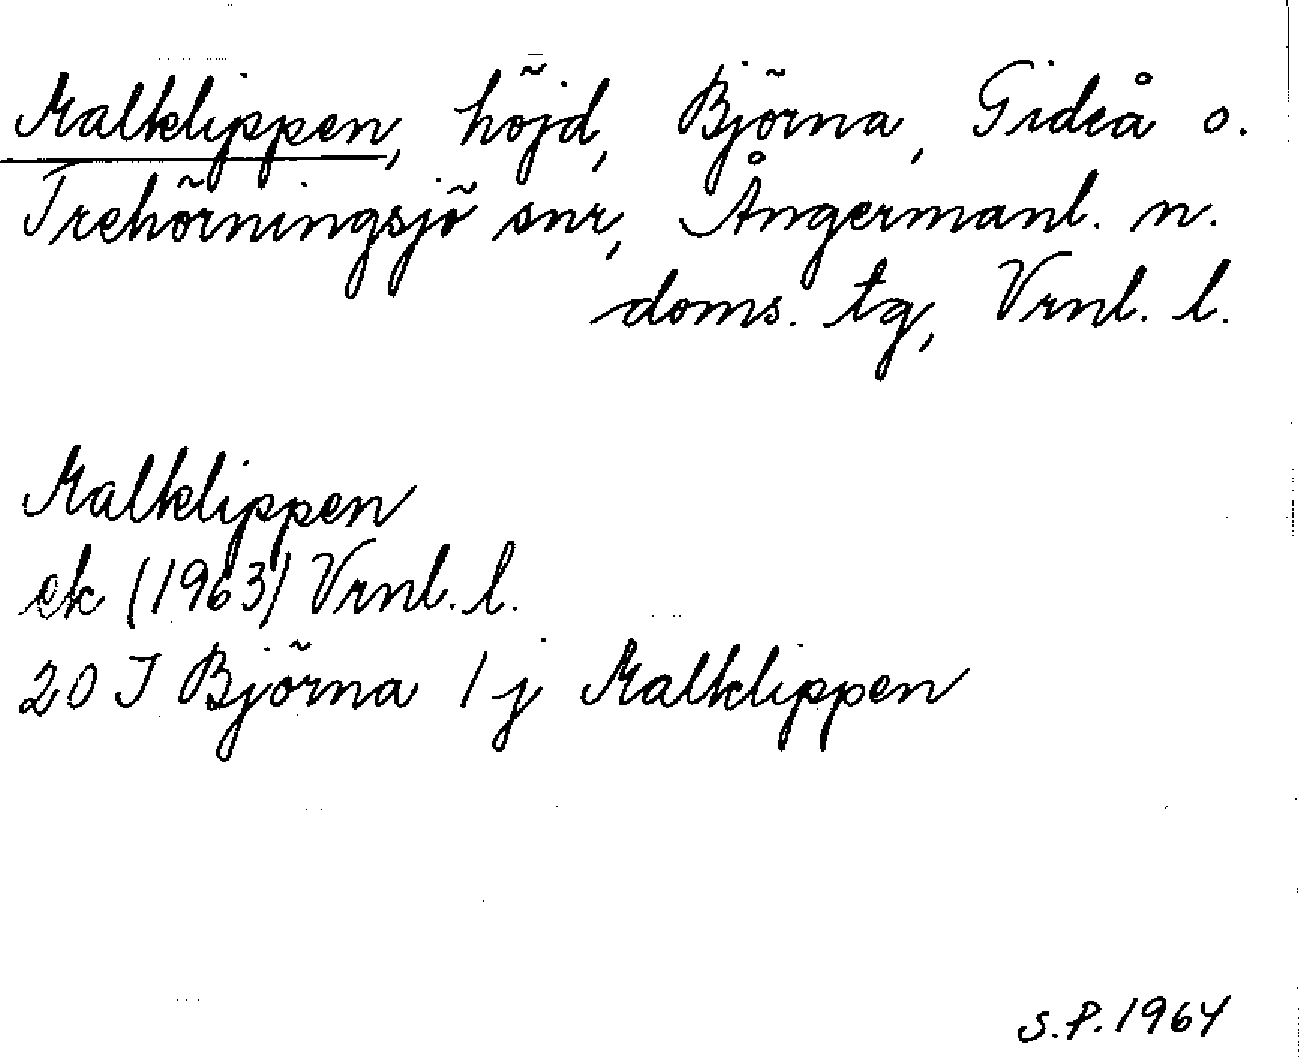 Malklippen, höjd, Björna, Gideå o.
Trehörningsjö snr, Ångermanl. n.
doms. tg, Vrnl. l.
Malklippen
ek (1963) Vrnl. l.
20 I Björna 1 j Malklippen
S.P. 1964